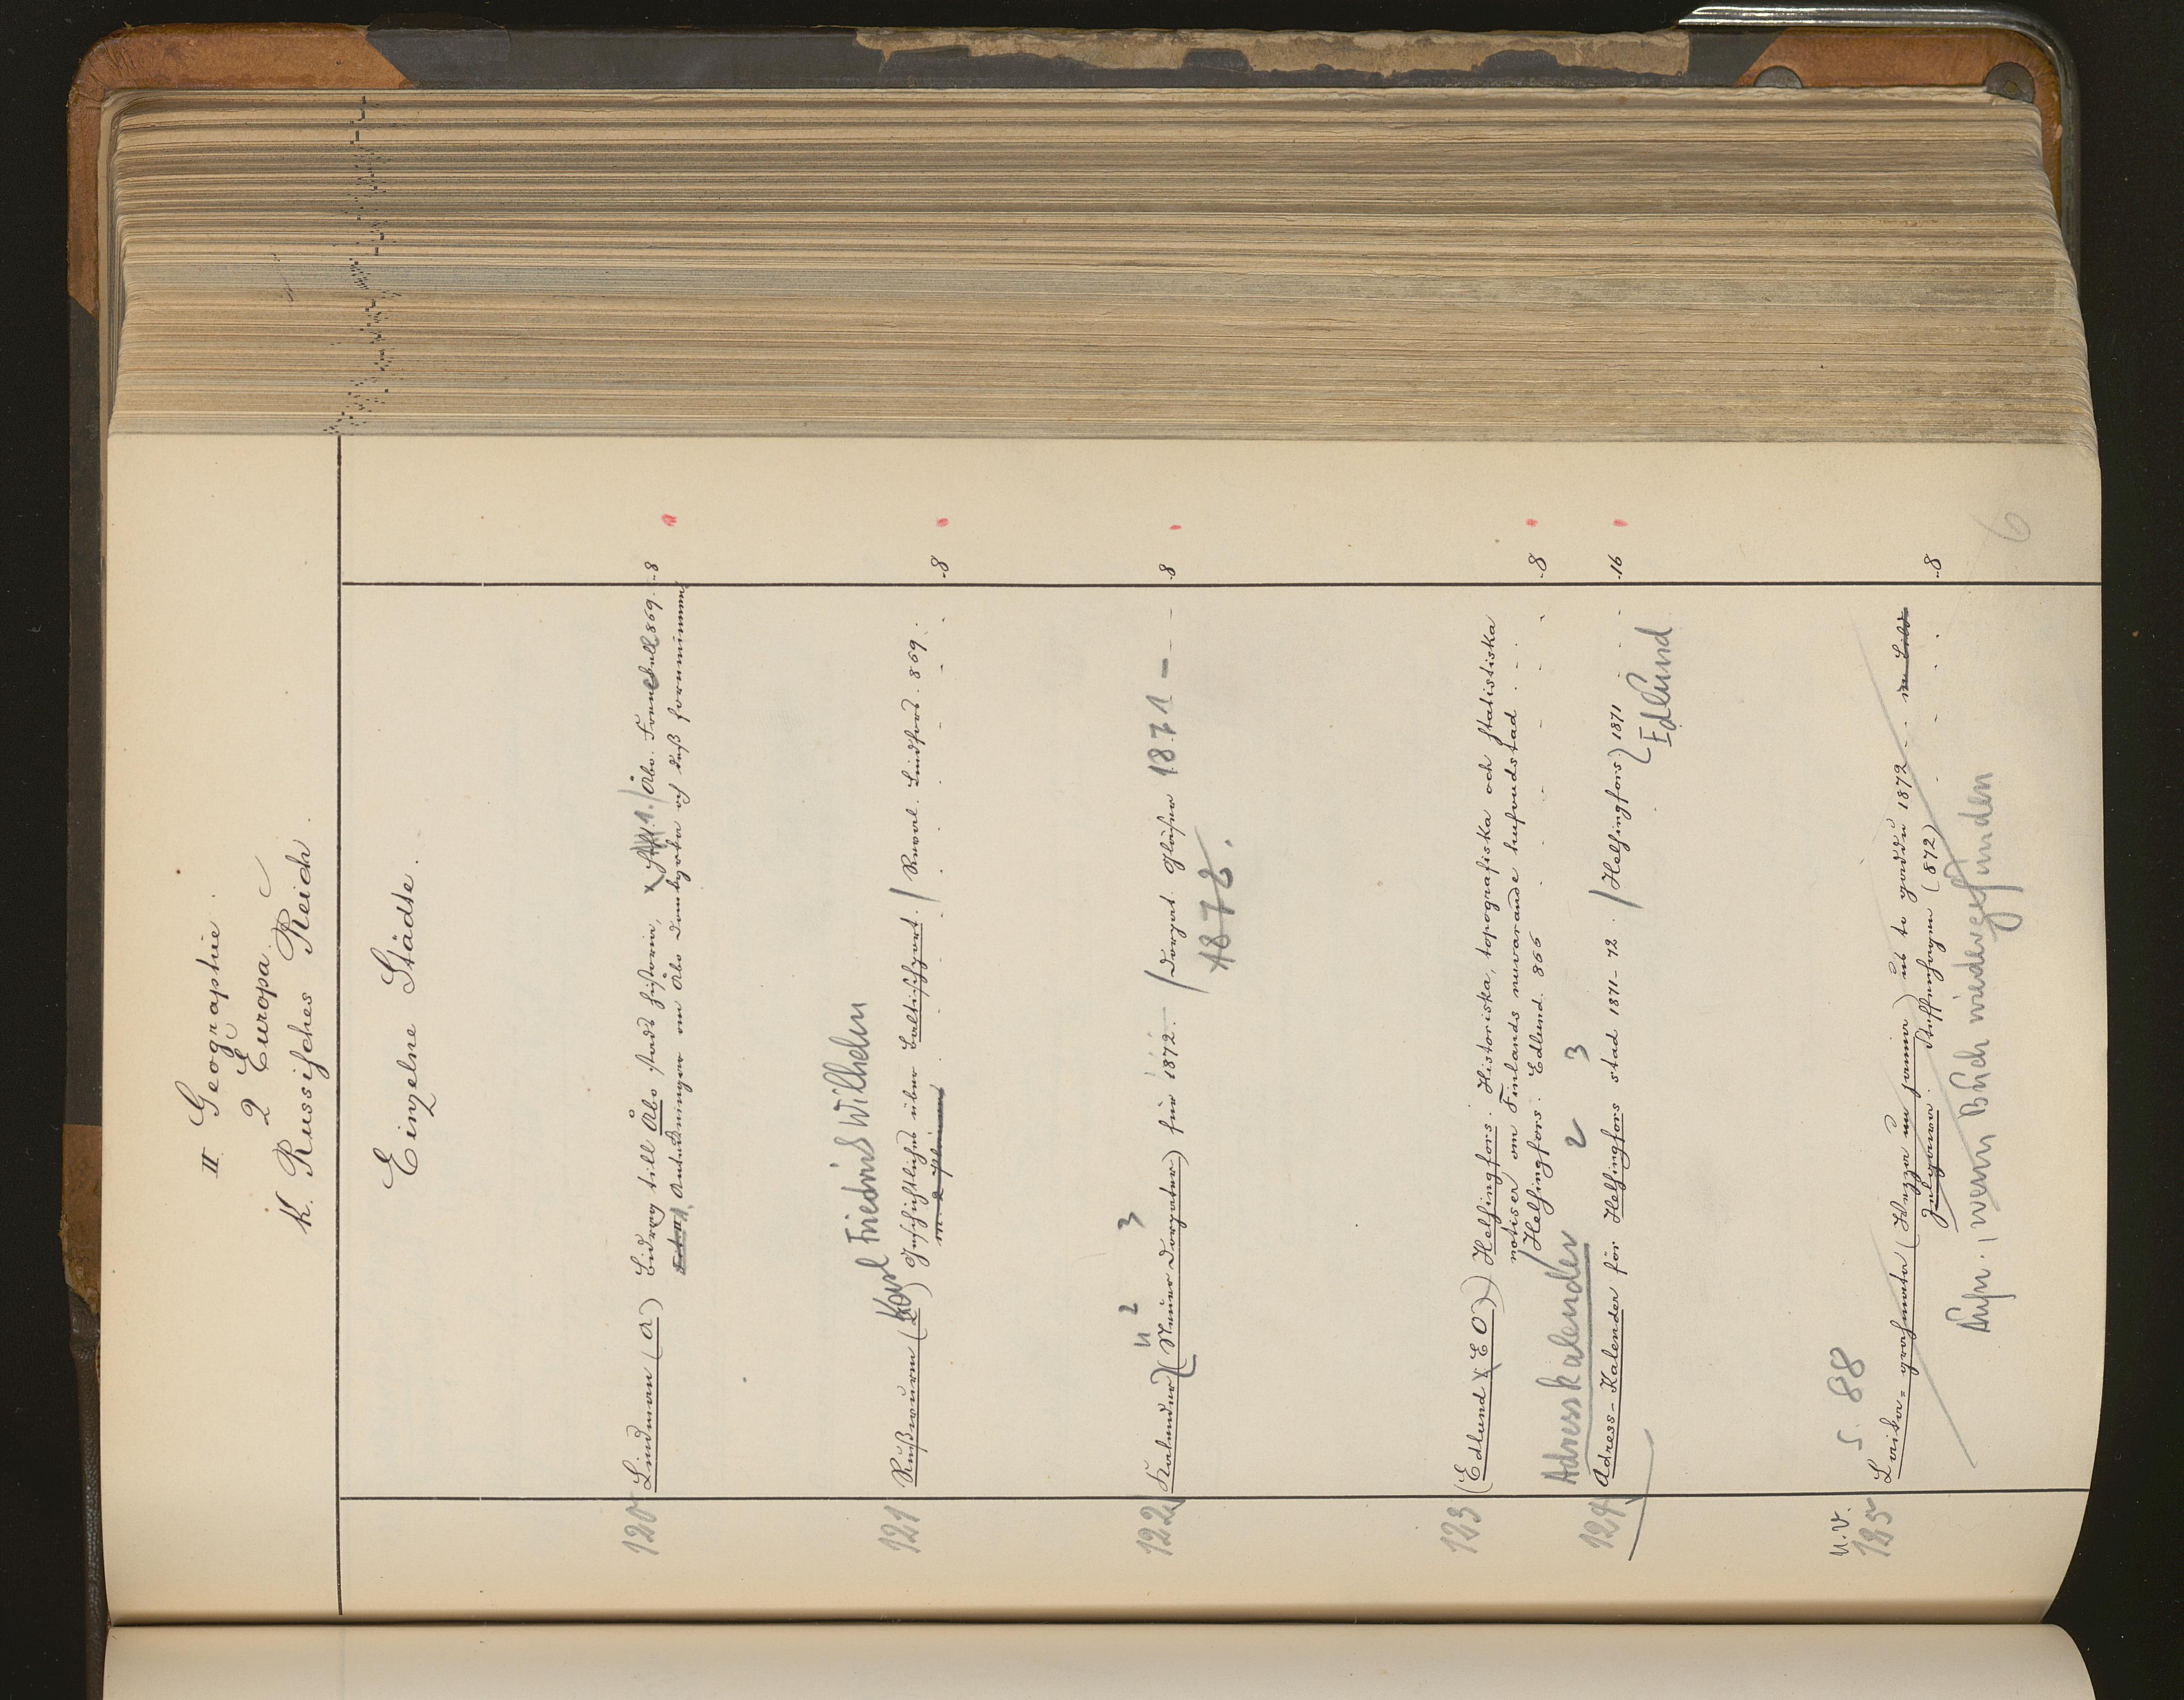 II Geographie.
2 Europa.
K. Russisches Reich.
Einzelne Städte.
120 Lindman (A) Bidrag till Åbo stads historia, 1. / Åbo. Frenckell 869. - 8
Anteckningar om Åbo domkyrka och dess fornminnen
Karl Friedrich Wilhelm
121 Rußwurm ( ) Geschichtliches über Baltischport. / Reval. Lindfors. 869. - 8
u 2 3
122 Kalender (Neuer Dorpater) für 1872. / Dorpat. Gläser 1871 - 8
1878.
123 (Edlund (E O)) Helsingfors. Historiska, topografiska och statistiska
notiser om Finlands nuvarande hufvudstad.
/ Helsingfors. Edlund. 866 - 8
Adresskalender 2 3
124 Adress-Kalender för Helsingfors stad 1871-72. / (Helsingfors) 1871 - 16
Edlund
u.v. S. 88
125 Laika-grahmata (Wezza un jauna) us to gaddu 1872 -
Jelgawa. Steffenhagen (872) - 8
Aufn., wenn Buch wiedergefunden
6